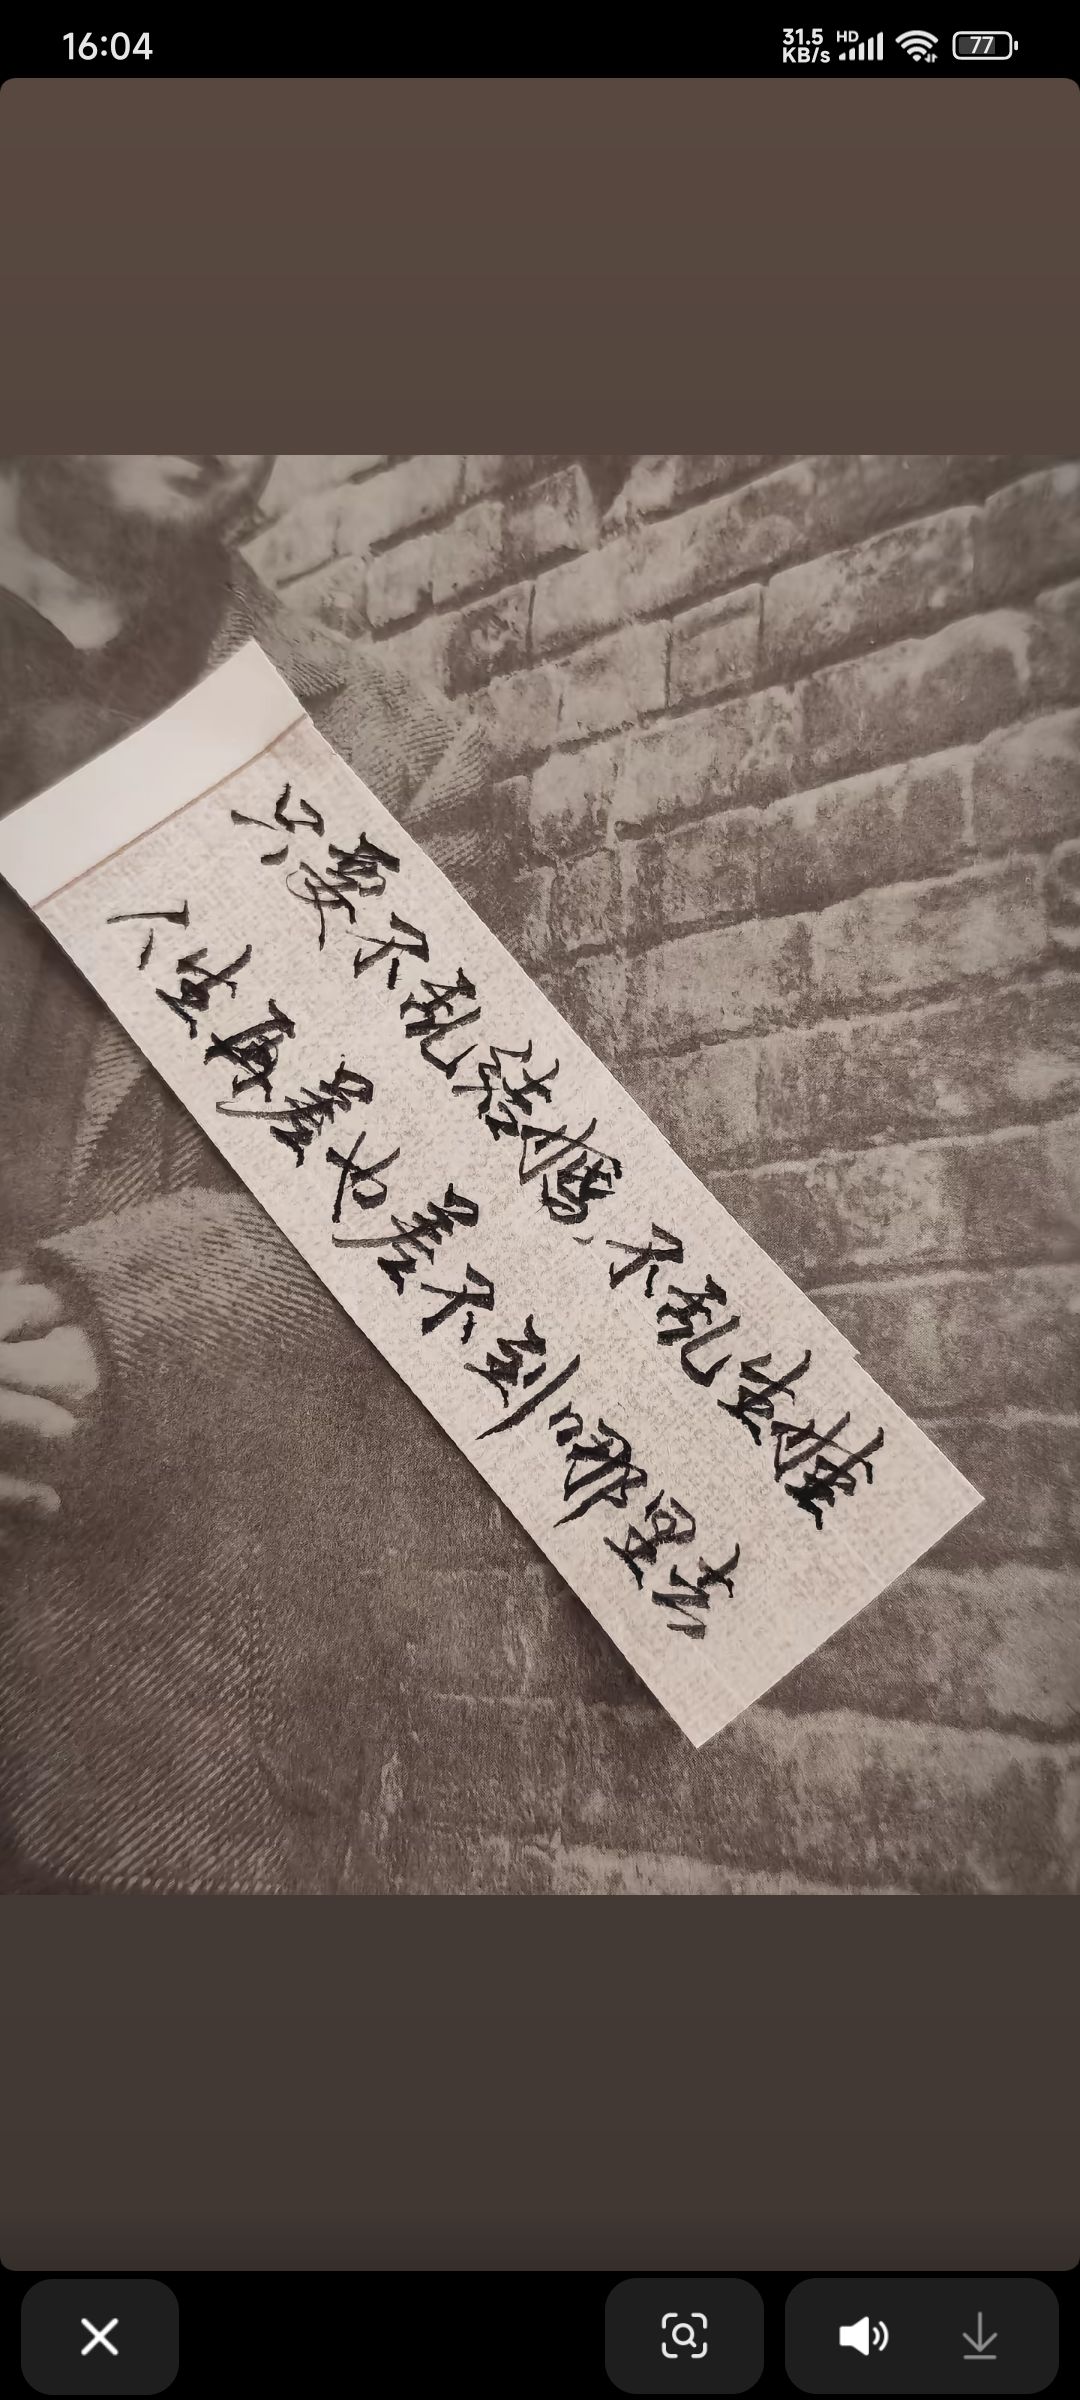 16:04
31.5 KB/s HD 77
只要不乱结婚、不乱生娃
人生再差也差不到哪里去